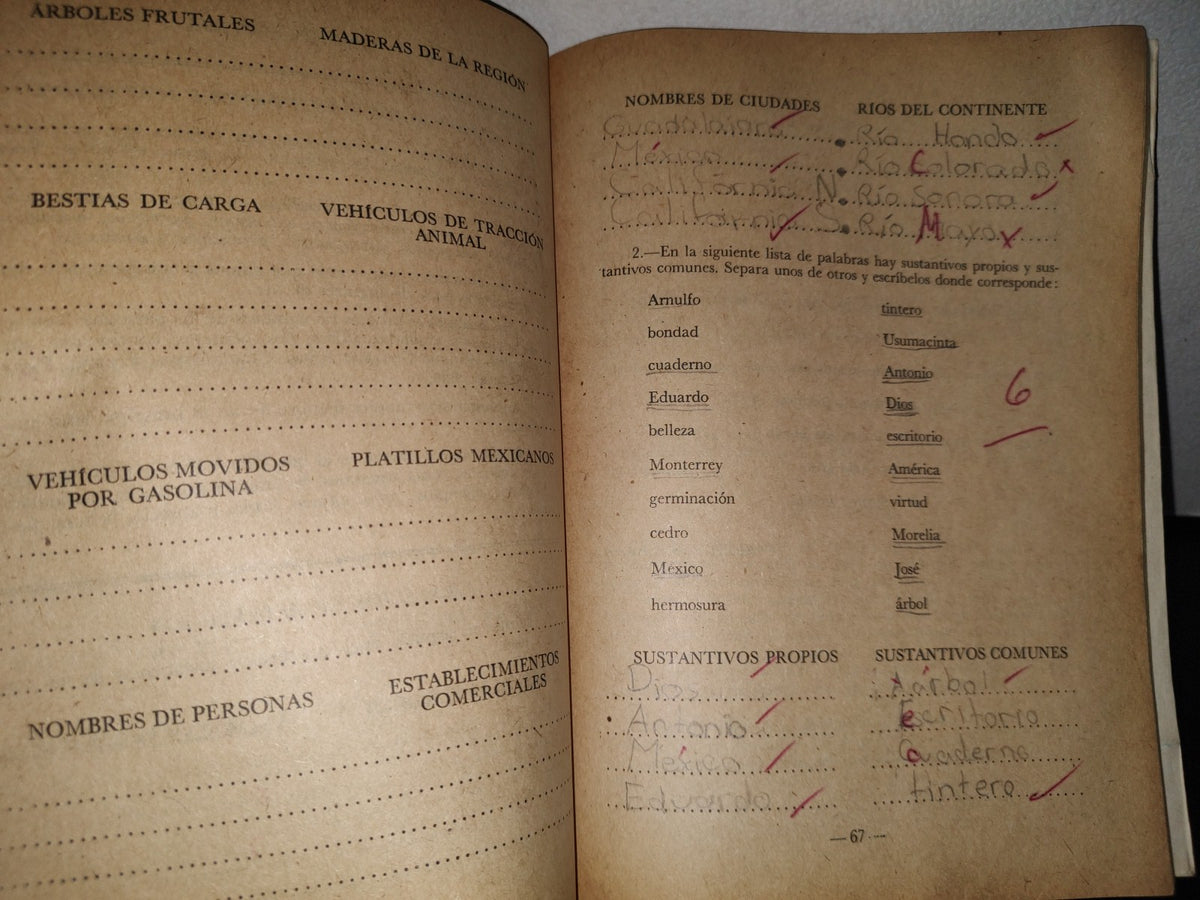 ÁRBOLES FRUTALES MADERAS DE LA REGIÓN
BESTIAS DE CARGA VEHÍCULOS DE TRACCIÓN
ANIMAL
VEHÍCULOS MOVIDOS PLATILLOS MEXICANOS
POR GASOLINA
NOMBRES DE PERSONAS ESTABLECIMIENTOS
COMERCIALES
NOMBRES DE CIUDADES RIOS DEL CONTINENTE
Guadalajara Río Hondo
México Río Colorado x
California N. Río Sonora
California S. Río Mayo x
2.—En la siguiente lista de palabras hay sustantivos propios y sus-
tantivos comunes. Separa unos de otros y escríbelos donde corresponde:
Arnulfo tintero
bondad Usumacinta
cuaderno Antonio
Eduardo Dios
6
belleza escritorio
Monterrey América
germinación virtud
cedro Morelia
México José
hermosura árbol
SUSTANTIVOS PROPIOS SUSTANTIVOS COMUNES
Dios árbol
Antonio escritorio
México Cuaderno
Eduardo tintero
—67—